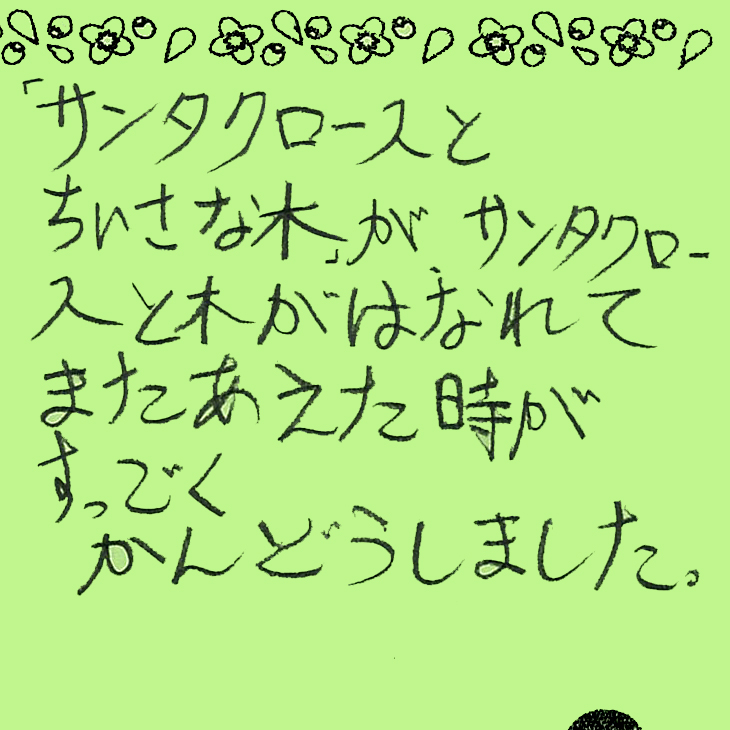 「サンタクロースと
ちいさな木」が サンタクロー
スと木がはなれて
またあえた時が
すっごく
かんどうしました。